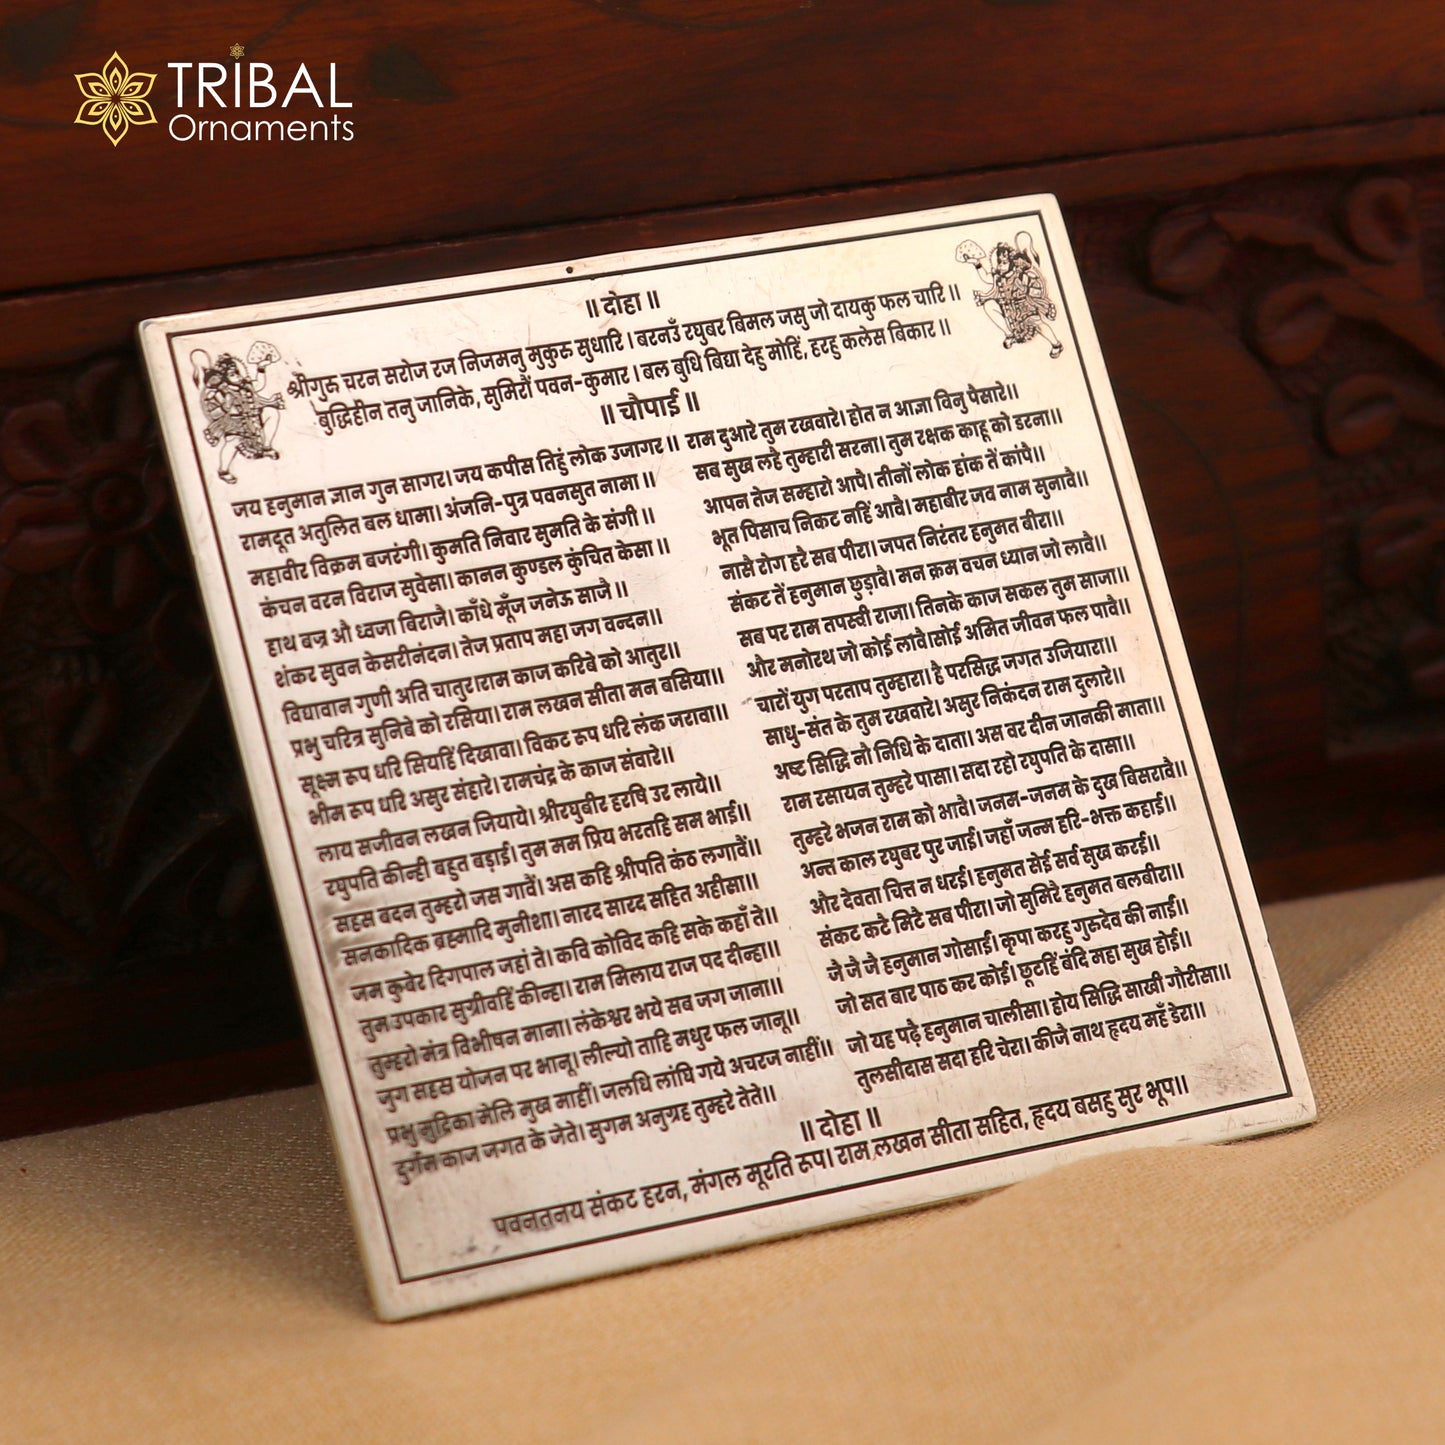 TRIBAL
Ornaments
॥ दोहा ॥
श्रीगुरु चरन सरोज रज निजमनु मुकुरु सुधारि । बरनउँ रघुबर बिमल जसु जो दायकु फल चारि ॥
बुद्धिहीन तनु जानिके, सुमिरौं पवन-कुमार । बल बुधि बिद्या देहु मोहिं, हरहु कलेस बिकार ॥
॥ चौपाई ॥
जय हनुमान ज्ञान गुन सागर। जय कपीस तिहुं लोक उजागर ॥
रामदूत अतुलित बल धामा। अंजनि-पुत्र पवनसुत नामा ॥
महावीर विक्रम बजरंगी। कुमति निवार सुमति के संगी ॥
कंचन वरन विराज सुवेसा। कानन कुण्डल कुंचित केसा ॥
हाथ बज्र औ ध्वजा बिराजै। काँधे मूँज जनेऊ साजै ॥
शंकर सुवन केसरीनंदन। तेज प्रताप महा जग वन्दन॥
विद्यावान गुणी अति चातुर।राम काज करिबे को आतुर॥
प्रभु चरित्र सुनिबे को रसिया। राम लखन सीता मन बसिया॥
सूक्ष्म रूप धरि सियहिं दिखावा। विकट रूप धरि लंक जरावा॥
भीम रूप धरि असुर संहारे। रामचंद्र के काज संवारे॥
लाय सजीवन लखन जियाये। श्रीरघुबीर हरषि उर लाये॥
रघुपति कीन्ही बहुत बड़ाई। तुम मम प्रिय भरतहि सम भाई॥
सहस बदन तुम्हरो जस गावैं। अस कहि श्रीपति कंठ लगावैं॥
सनकादिक ब्रह्मादि मुनीशा। नारद सारद सहित अहीसा॥
जम कुबेर दिगपाल जहां ते। कवि कोविद कहि सके कहाँ ते॥
तुम उपकार सुग्रीवहिं कीन्हा। राम मिलाय राज पद दीन्हा॥
तुम्हरो मंत्र विभीषन माना। लंकेश्वर भये सब जग जाना॥
जुग सहस योजन पर भानू। लील्यो ताहि मधुर फल जानू॥
प्रभु मुद्रिका मेलि मुख माहीं। जलधि लांघि गये अचरज नाहीं॥
दुर्गम काज जगत के जेते। सुगम अनुग्रह तुम्हरे तेते॥
राम दुआरे तुम रखवारे। होत न आज्ञा विनु पैसारे॥
सब सुख लहै तुम्हारी सरना। तुम रक्षक काहू को डरना॥
आपन तेज सम्हारो आपै। तीनों लोक हांक तें कांपै॥
भूत पिसाच निकट नहिं आवै। महाबीर जव नाम सुनावै॥
नासै रोग हरै सब पीरा। जपत निरंतर हनुमत बीरा॥
संकट तें हनुमान छुड़ावै। मन क्रम वचन ध्यान जो लावै॥
सब पर राम तपस्वी राजा। तिनके काज सकल तुम साजा॥
और मनोरथ जो कोई लावै।सोई अमित जीवन फल पावै॥
चारों युग परताप तुम्हारा। है परसिद्ध जगत उजियारा॥
साधु-संत के तुम रखवारे। असुर निकंदन राम दुलारे॥
अष्ट सिद्धि नौ निधि के दाता। अस वर दीन जानकी माता॥
राम रसायन तुम्हरे पासा। सदा रहो रघुपति के दासा॥
तुम्हरे भजन राम को भावै। जनम-जनम के दुख बिसरावै॥
अन्त काल रघुबर पुर जाई। जहाँ जन्म हरि-भक्त कहाई॥
और देवता चित्त न धरई। हनुमत सेई सर्व सुख करई॥
संकट कटै मिटै सब पीरा। जो सुमिरै हनुमत बलबीरा॥
जै जै जै हनुमान गोसाईं। कृपा करहु गुरुदेव की नाईं॥
जो सत बार पाठ कर कोई। छूटहिं बंदि महा सुख होई॥
जो यह पढ़ै हनुमान चालीसा। होय सिद्धि साखी गौरीसा॥
तुलसीदास सदा हरि चेरा। कीजै नाथ हृदय महँ डेरा॥
॥ दोहा ॥
पवनतनय संकट हरन, मंगल मूरति रूप। राम लखन सीता सहित, हृदय बसहु सुर भूप॥